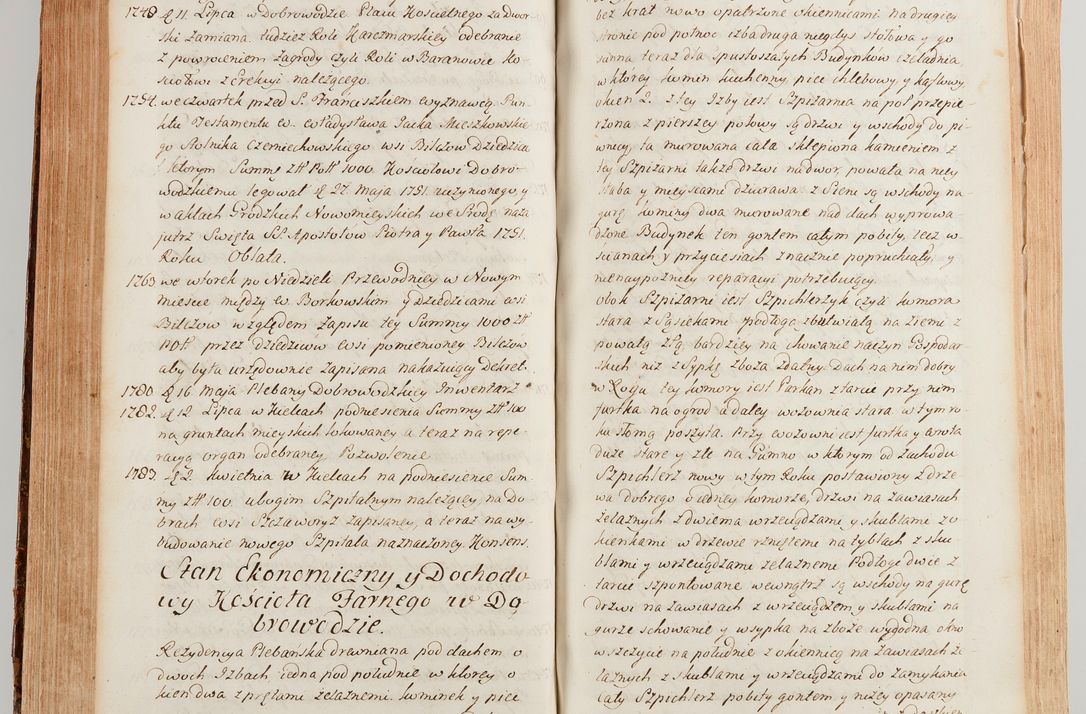 1748 d 11 Lipca w Dobrowodzie Placu Kościelnego za dwor
ski zamiana, tudzież Roli Karczmarskiey odebranie
z powroceniem zagrody czyli Roli w Baranowie Ko-
sciołowi z Erekcyi należącego.
1754. we czwartek przed S. Franciszkiem wyznawcą Pun-
ktu Testamentu ś. Władysława Jacka Mieszkowskie
go Stolnika Czerniechowskiego wsi Bilczow Dziedzica
ktorym Summę zł Pol 1000. Kościołowi Dobro-
wodzkiemu legował d 27. Maja 1751. uczynionego, y
w aktach Grodzkich Nowomieyskich we Srodę naza
jutrz Swięta SS. Apostołow Piotra y Pawła 1751.
Roku Oblata.
1763 we wtorek po Niedzieli Przewodniey w Nowym
mieście między w. Borkowskim y Dziedzicami wsi
Bilczow względem zapisu tey Summy 1000 zł
Pol przez Dziedzicow wsi pomienioney Bilczow
aby była urzędownie zapisana nakazuiący Dekret.
1780. d 16 Maja Plebany Dobrowodzkiey Inwentarz
1782. d 12 Lipca w Kielcach podniesienia Summy zł 100
na gruntach mieyskich lokowaney a teraz na repe-
racyą organ odebraney Pozwolenie
1783. d 2. kwietnia w Kielcach na podniesienie Sum-
my zł 100. ubogim Szpitalnym należącey, na Do
brach wsi Szczaworyż zapisaney, a teraz na wy-
budowanie nowego Szpitala naznaczoney Konsens.
Stan Ekonomiczny y Dochodo
wy Kościoła Farnego w Do
browodzie.
Rezydencya Plebańska drewniana pod dachem o
dwoch Izbach, iedna pod południe w ktorey o
kien dwa z prętami żelaznemi kominek y piec
bez krat nowo opatrzone okiennicami na drugiey
stronie pod pułnoc izba druga niegdys stołowa y go
sanna teraz dla spustoszałych Budynkow czeladnia,
w ktorey komin kuchenny, piec chlebowy y kaflowy,
okien 2. z tey Izby iest Szpiżarnia na poł przepie
rzona z pierszey połowy są drzwi y wschody do pi
wnicy, ta murowana cała sklepiona kamieniem z
tey Szpiżarni także drzwi nadwor, powała na niey
słaba y mieyscami dziurawa. z Sieni są wschody na
gurę kominy dwa murowane nad dach wyprowa
dzone Budynek ten gontem całym pobity, lecz w
scianach y przyciesiach znacznie popruchiały, y
nienaypozniey reparacyi potrzebuiący.
obok Szpiżarni iest Szpichlerzyk czyli komora
stara z Sąsiekami podłogą zbutwiałą na ziemi z
powałą złą bardziey na chowanie naczyn Gospodar
skich niz z Sypkę zboża zdatny. Dach na nim dobry
w Roiju tey komory iest Parkan z tarcic przy nim
furtka na ogrod a daley wozownia stara w tym ro
ku słomą poszyta. Przy wozowni iest furtka y wrota
duże stare y złe na Gumno w ktorym od zachodu
Szpichlerz nowy w tym Roku postawiony z drze
wa dobrego o iedney komorze, drzwi na zawiasach
żelaznych z dwiema wrzeciądzami y skublami z o
kienkami w drzewie rznętemi na tyblach z sku
blami y wrzeciądzami żelaznemi Podłogi dwie z
tarcic szpontowane wewnątrz są wschody na gurę
drzwi na zawiasach z wrzeciądzem, y skublami na
gurze schowanie y wsypka na zboże wygodna okno
w szczycie na południe z okiennicą na zawiasach że
laznych z skublami y wrzeciądzami do zamykania
Cały Szpichlerz pobity gontem, y niżey opasany